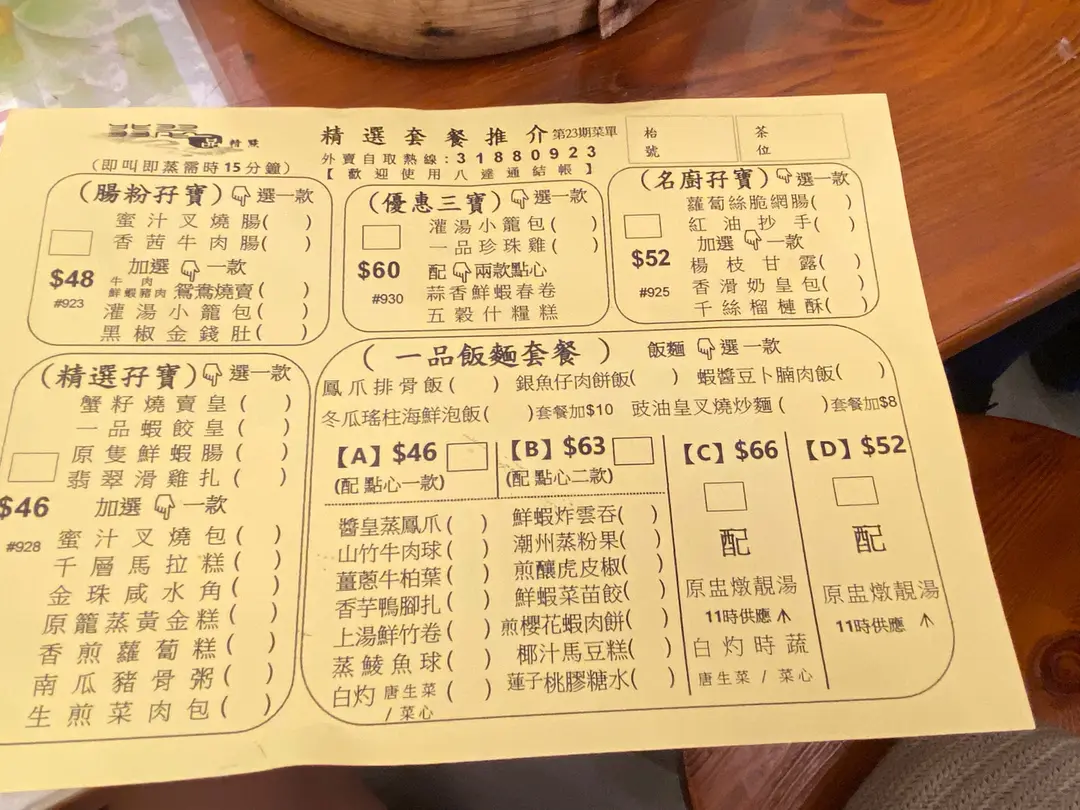 點 特 點
精選套餐推介 第23期菜單
外賣自取熱線:31880923
【歡迎使用八達通結帳】
枱號
茶位
(即叫即蒸需時15分鐘)
(腸粉孖寶) 選一款
蜜汁叉燒腸( )
香茜牛肉腸( )
加選 一款
牛肉
鮮蝦豬肉 鴛鴦燒賣( )
灌湯小籠包( )
黑椒金錢肚( )
$48
#923
(優惠三寶) 選一款
灌湯小籠包( )
一品珍珠雞( )
配 兩款點心
蒜香鮮蝦春卷
五穀什糧糕
$60
#930
(名廚孖寶) 選一款
蘿蔔絲脆網腸( )
紅油抄手( )
加選 一款
楊枝甘露( )
香滑奶皇包( )
千絲榴槤酥( )
$52
#925
(精選孖寶) 選一款
蟹籽燒賣皇( )
一品蝦餃皇( )
原隻鮮蝦腸( )
翡翠滑雞扎( )
$46 加選 一款
#928
蜜汁叉燒包( )
千層馬拉糕( )
金珠咸水角( )
原籠蒸黃金糕( )
香煎蘿蔔糕( )
南瓜豬骨粥( )
生煎菜肉包( )
(一品飯麵套餐) 飯麵 選一款
鳳爪排骨飯( ) 銀魚仔肉餅飯( ) 蝦醬豆卜腩肉飯( )
冬瓜瑤柱海鮮泡飯( )套餐加$10 豉油皇叉燒炒麵( )套餐加$8
【A】$46
(配 點心一款)
【B】$63
(配 點心二款)
醬皇蒸鳳爪( )
山竹牛肉球( )
薑蔥牛柏葉( )
香芋鴨腳扎( )
上湯鮮竹卷( )
蒸鯪魚球( )
白灼 唐生菜 / 菜心( )
鮮蝦炸雲吞( )
潮州蒸粉果( )
煎釀虎皮椒( )
鮮蝦菜苗餃( )
煎櫻花蝦肉餅( )
椰汁馬豆糕( )
蓮子桃膠糖水( )
【C】$66
配
原盅燉靚湯
11時供應
白灼時蔬
唐生菜 / 菜心
【D】$52
配
原盅燉靚湯
11時供應